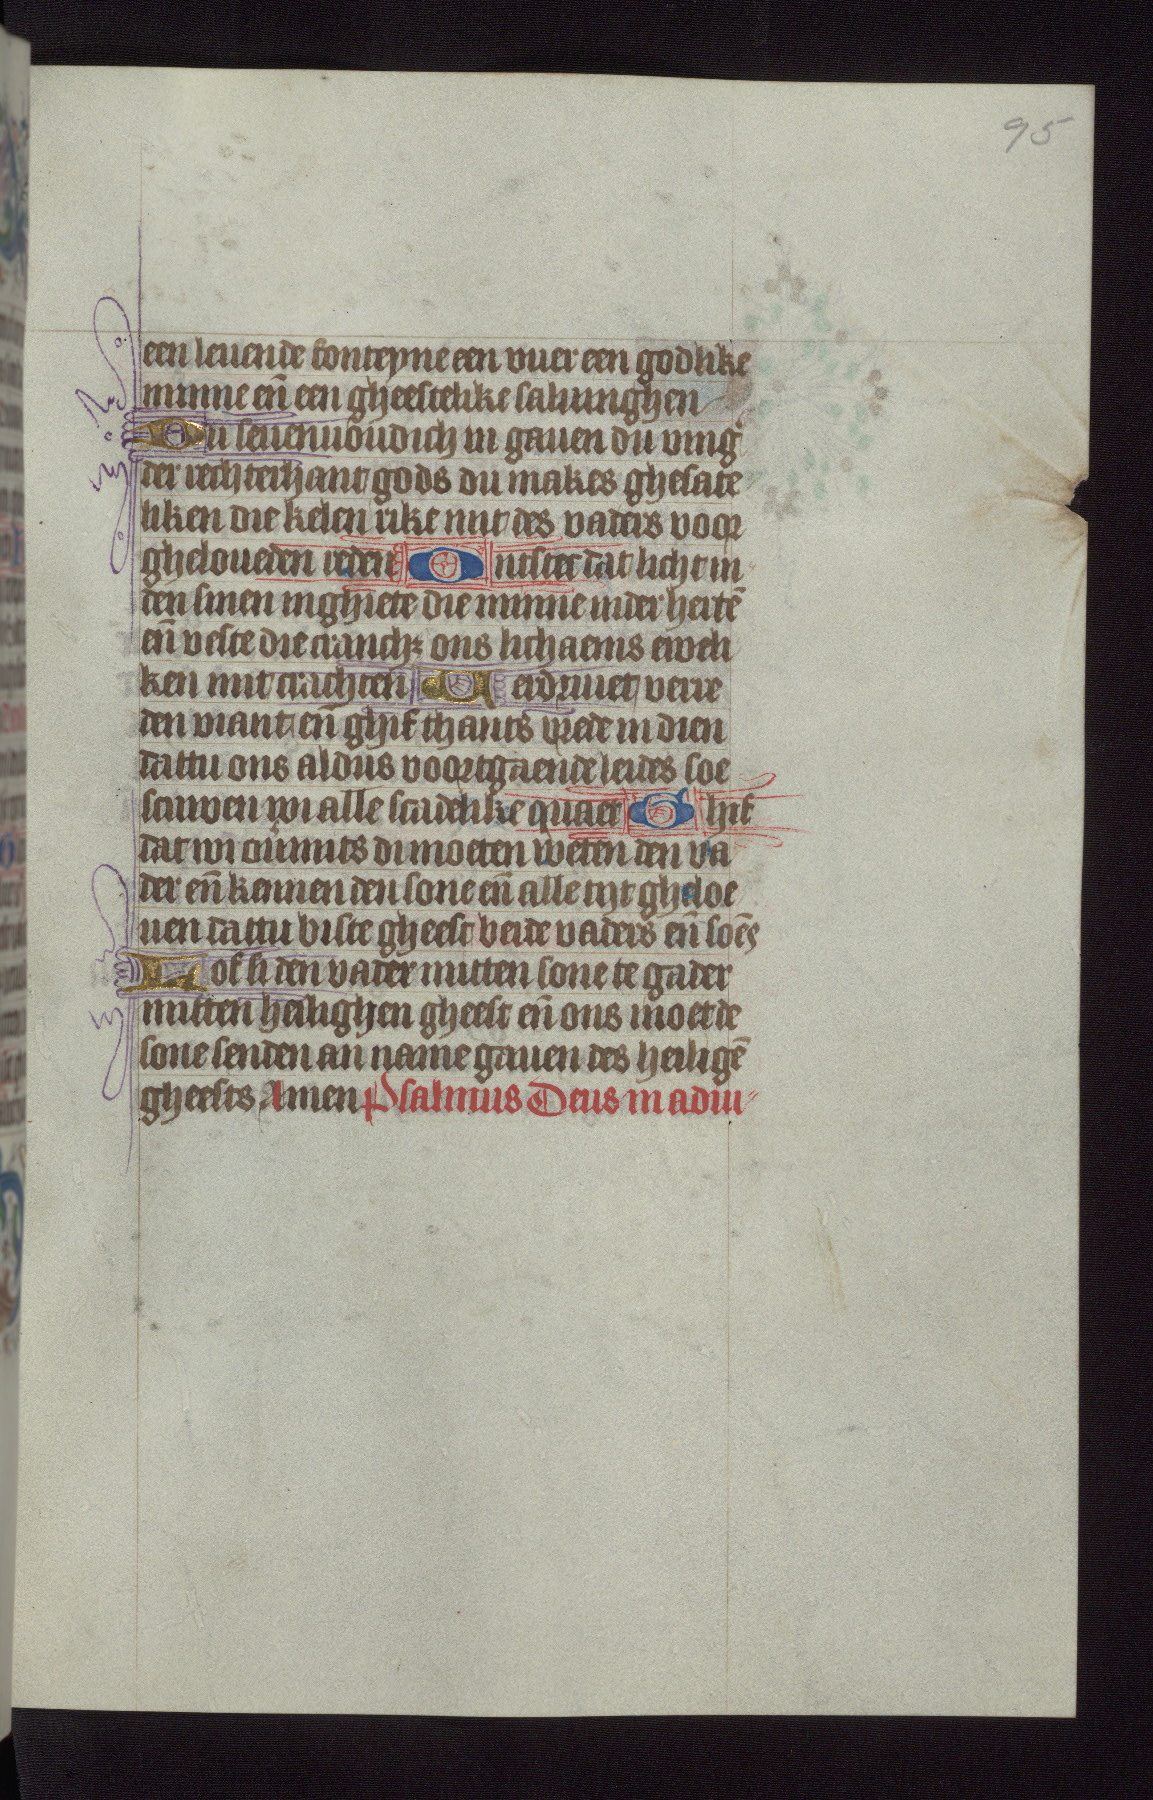 95
een leuende fonteyne een vuer een godlike
minne eñ een gheestelike saluinghen
Du seuenuoudich in gauen du ving̛
der rechterhant gods du makes ghesate
liken die kelen rike mit des vaders voor
gheloueden reden Ontstect dat licht in
den sinen inghiete die minne inder hertē
eñ veste die cranchꝫ ons lichaems eweli
ken mit crachten Verdriuet verre
den viant eñ ghif thants vrede in dien
dattu ons aldus voortgaende leides soe
scuwen wi alle scadelike quaet Ghif
dat wi ouermits di moeten weten den va
der eñ kennen den sone eñ alle tijt gheloe
uen dattu biste gheest beide vaders eñ soēs
Lof si den vader mitten sone te gader
mitten heilighen gheest eñ ons moet de
sone senden an name gauen des heiligē
gheests Amen Psalmus Deus in adiu